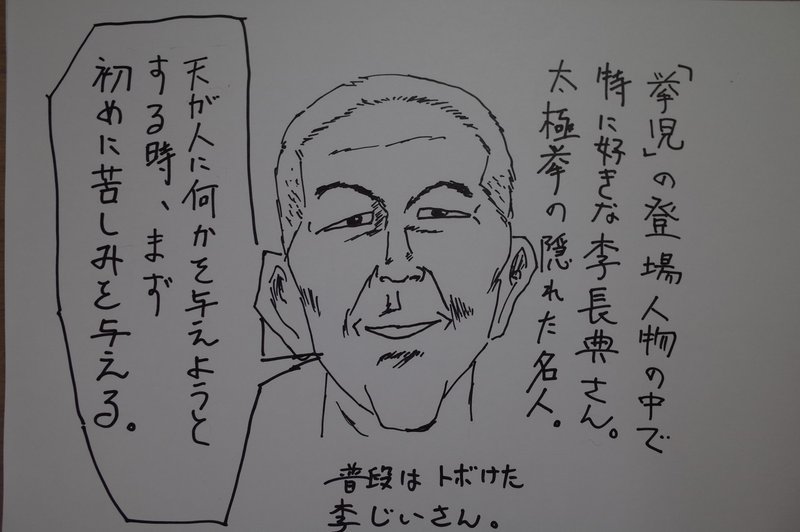 「挙児」の登場人物の中で
特に好きな李長典さん。
太極挙の隠れた名人。
天が人に何かを与えようと
する時、まず
初めに苦しみを与える。
普段はトボけた
李じいさん。